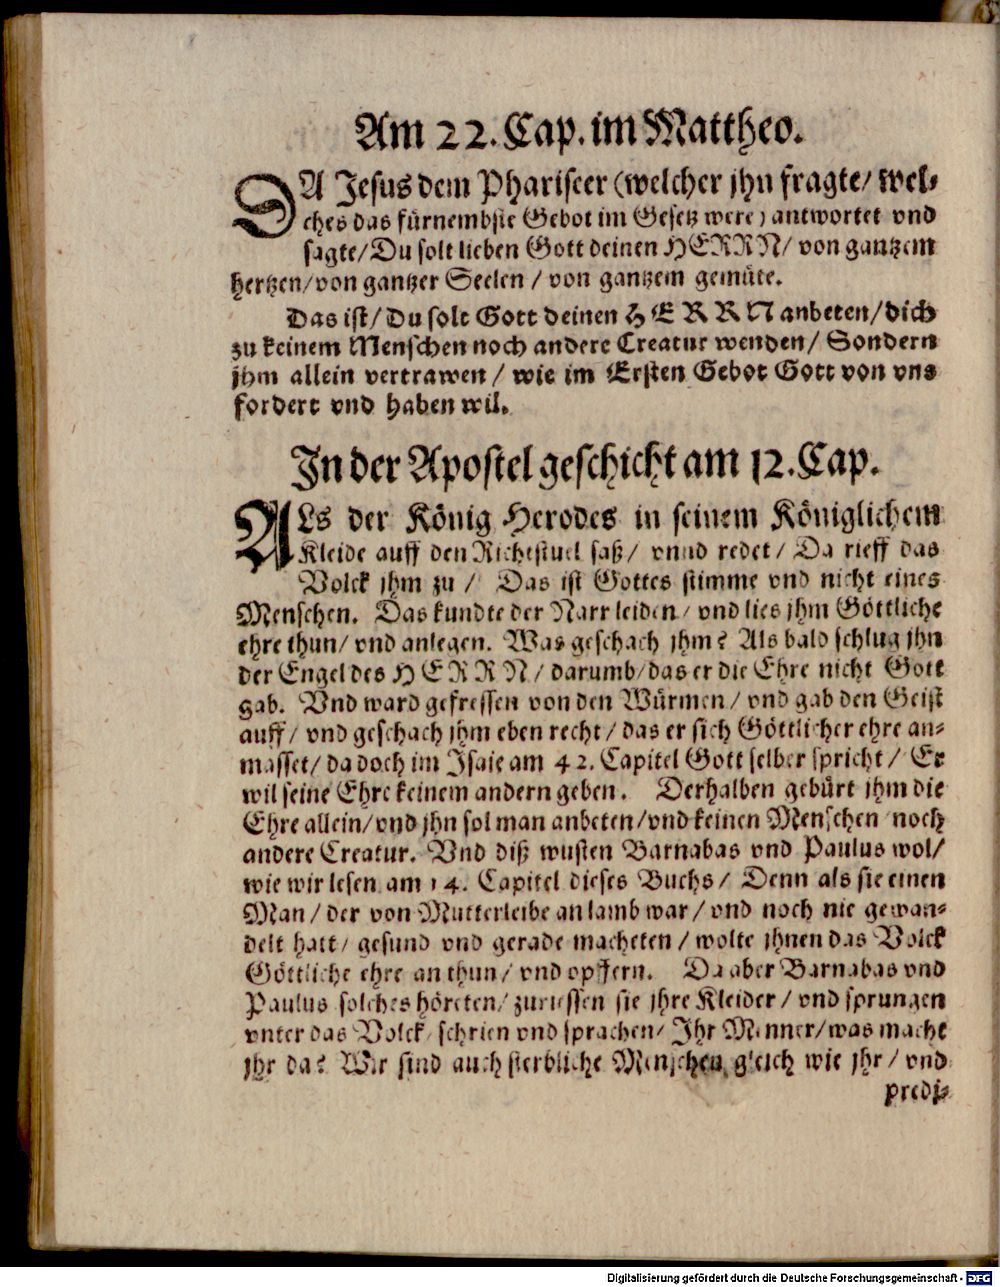 Am 22. Cap. im Mattheo.
DA Jesus dem Phariseer (welcher jhn fragte/ wel-
ches das fürnembste Gebot im Gesetz were) antwortet vnd
sagte/ Du solt lieben Gott deinen HERRN/ von gantzem
hertzen/ von gantzer Seelen / von gantzem gemüte.
Das ist/ Du solt Gott deinen HERRN anbeten/ dich
zu keinem Menschen noch andere Creatur wenden/ Sondern
jhm allein vertrawen / wie im Ersten Gebot Gott von vns
fordert vnd haben wil.
In der Apostel geschicht am 12. Cap.
ALs der König Herodes in seinem Königlichem
Kleide auff den Richtstuel saß/ vnnd redet/ Da rieff das
Volck jhm zu / Das ist Gottes stimme vnd nicht eines
Menschen. Das kundte der Narr leiden/ vnd lies jhm Göttliche
ehre thun/ vnd anlegen. Was geschach jhm? Als bald schlug jhn
der Engel des HERRN/ darumb/ das er die Ehre nicht Gott
gab. Vnd ward gefressen von den Würmen/ vnd gab den Geist
auff/ vnd geschach jhm eben recht/ das er sich Göttlicher ehre an-
masset/ da doch im Isaie am 42. Capitel Gott selber spricht/ Er
wil seine Ehre keinem andern geben. Derhalben gebürt jhm die
Ehre allein/ vnd jhn sol man anbeten/ vnd keinen Menschen noch
andere Creatur. Vnd diß wusten Barnabas vnd Paulus wol/
wie wir lesen am 14. Capitel dieses Buchs/ Denn als sie einen
Man/ der von Mutterleibe an lamb war/ vnd noch nie gewan-
delt hatt/ gesund vnd gerade macheten/ wolte jhnen das Volck
Göttliche ehre an thun/ vnd opffern. Da aber Barnabas vnd
Paulus solches höreten/ zuriessen sie jhre Kleider/ vnd sprungen
vnter das Volck/ schrien vnd sprachen/ Ihr Menner/ was macht
jhr da? Wir sind auch sterbliche Menschen gleich wie jhr/ vnd
predi-
Digitalisierung gefördert durch die Deutsche Forschungsgemeinschaft - DFG